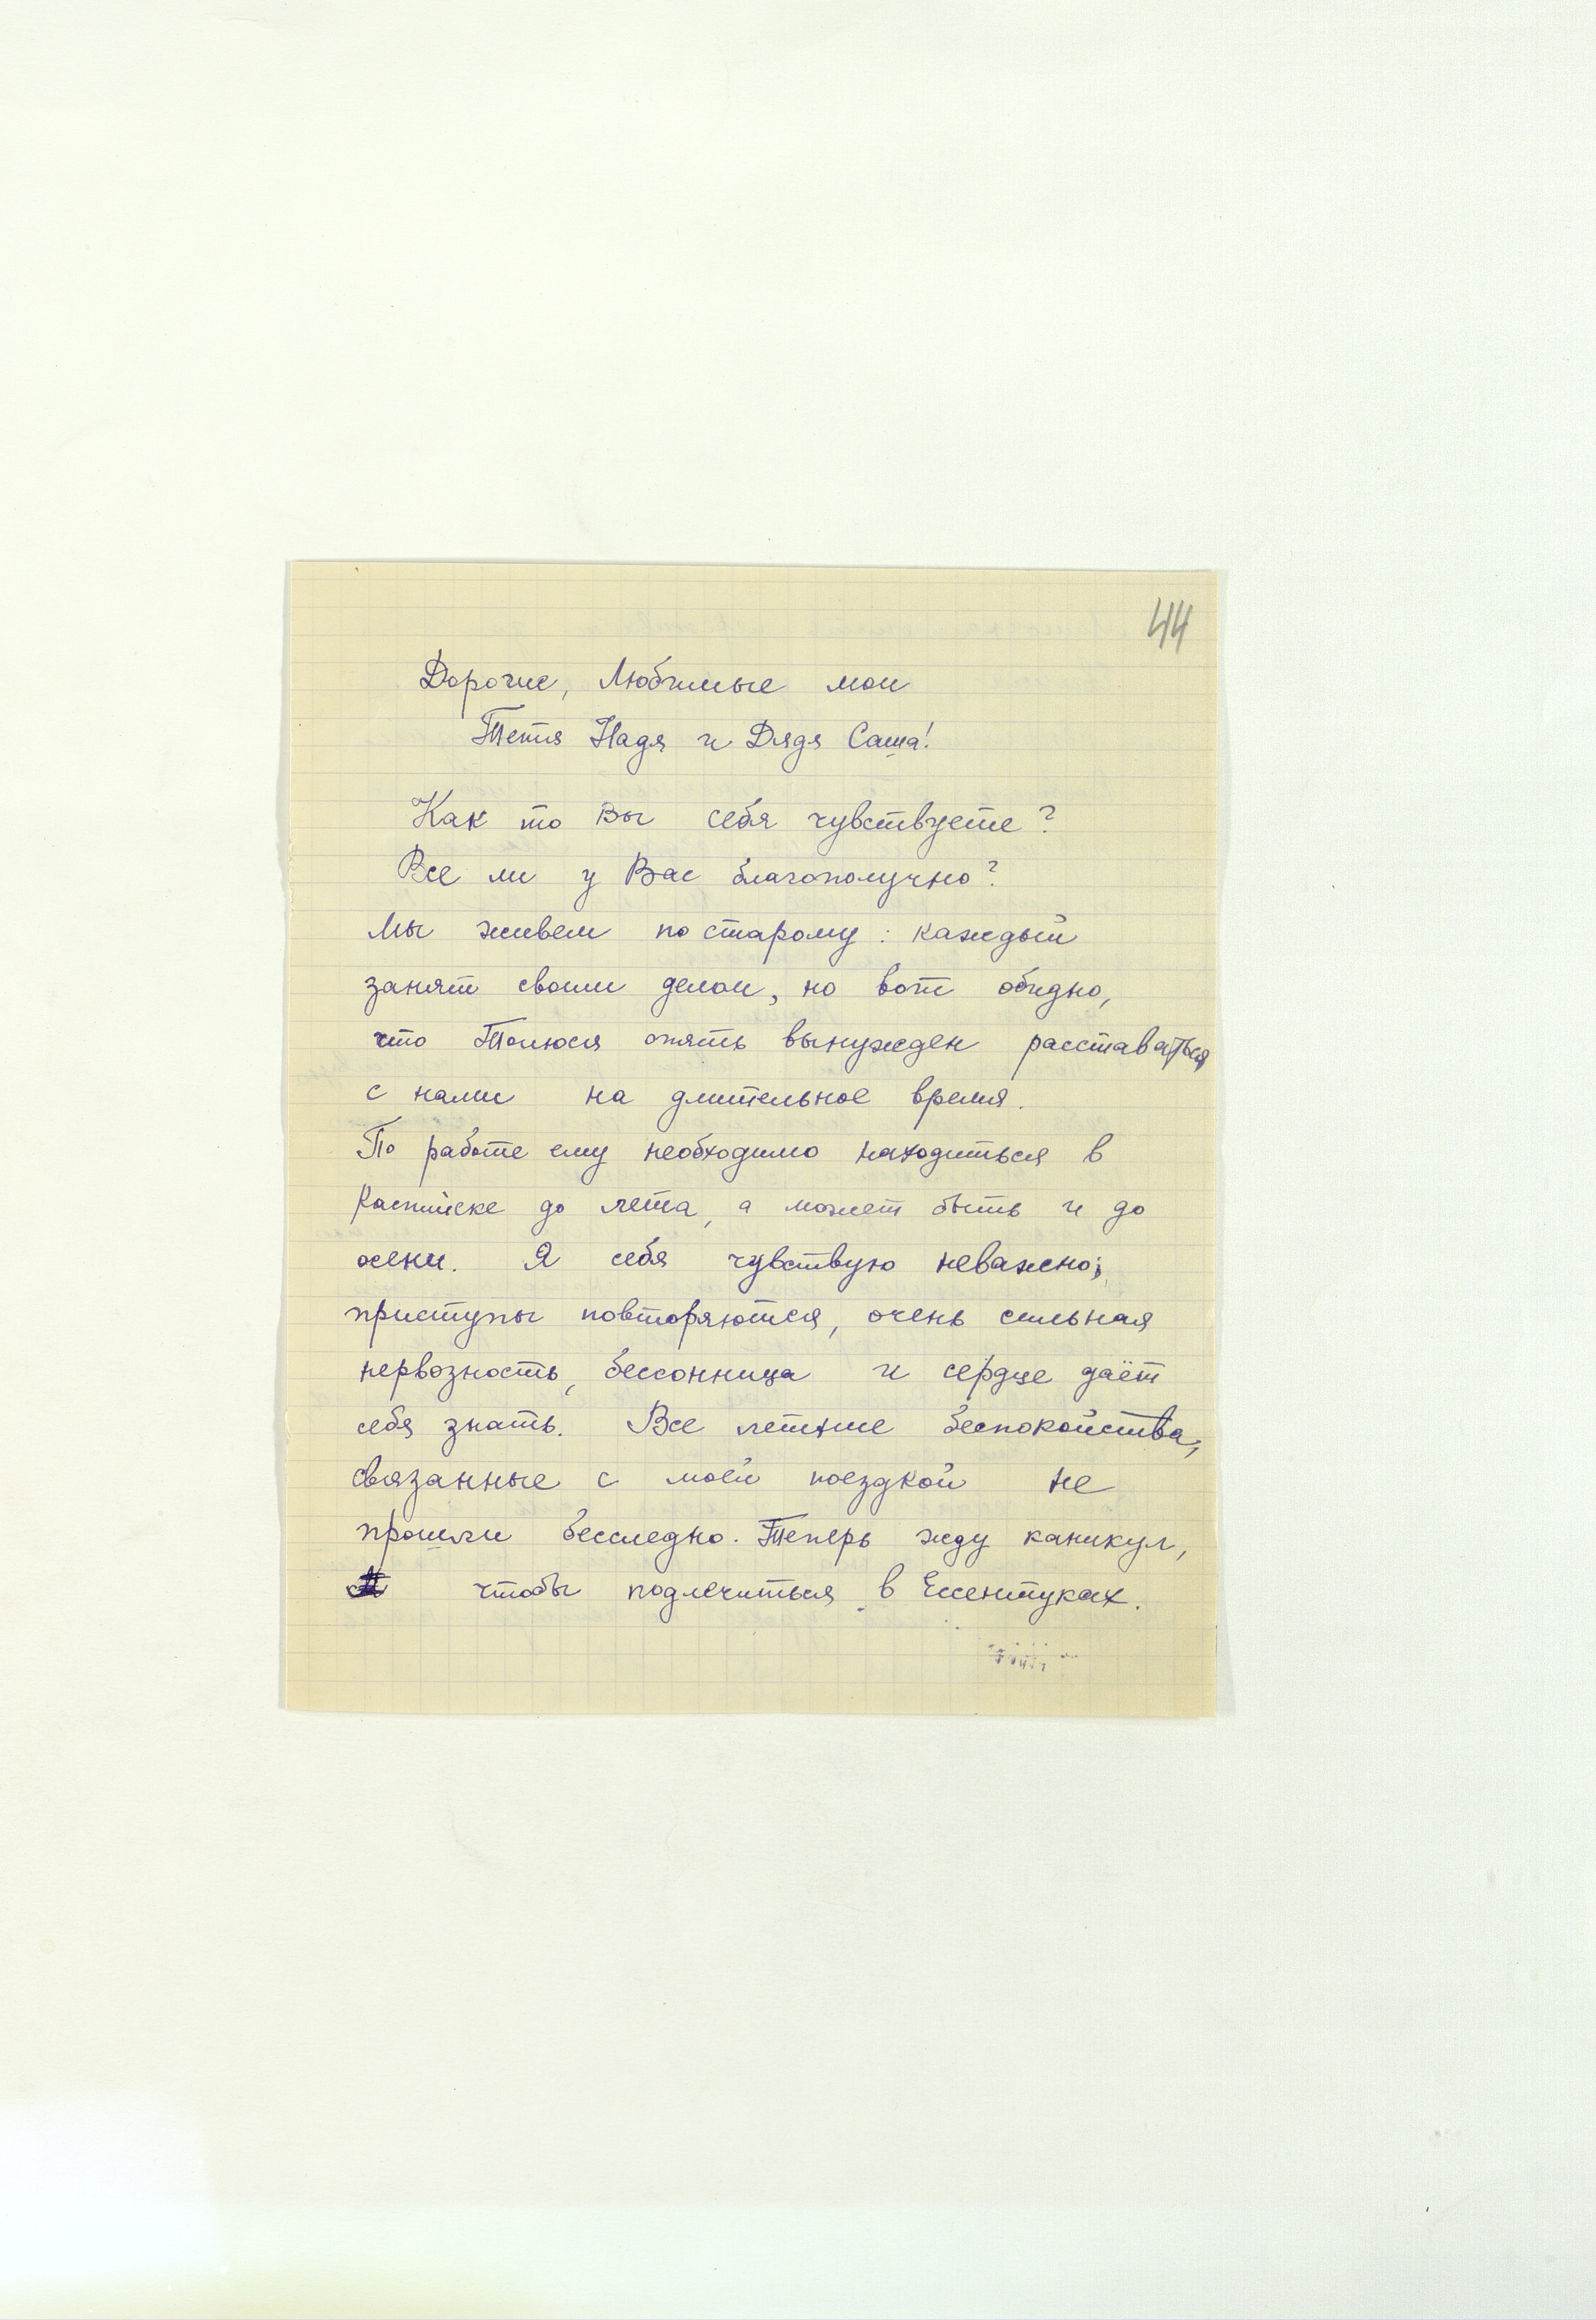 44
Дорогие, Любимые мои
Тетя Надя и Дядя Саша!
Как то Вы себя чувствуете?
Все ли у Вас благополучно?
Мы живем по старому: каждый
занят своим делом, но вот обидно,
что Толюся опять вынужден расставаться
с нами на длительное время.
По работе ему необходимо находиться в
Каспийске до лета, а может быть и до
осени. Я себя чувствую неважно;
приступы повторяются, очень сильная
нервозность, бессонница и сердце даёт
себя знать. Все летние беспокойства,
связанные с моей поездкой не
прошли бесследно. Теперь жду каникул,
чтобы подлечиться в Ессентуках.